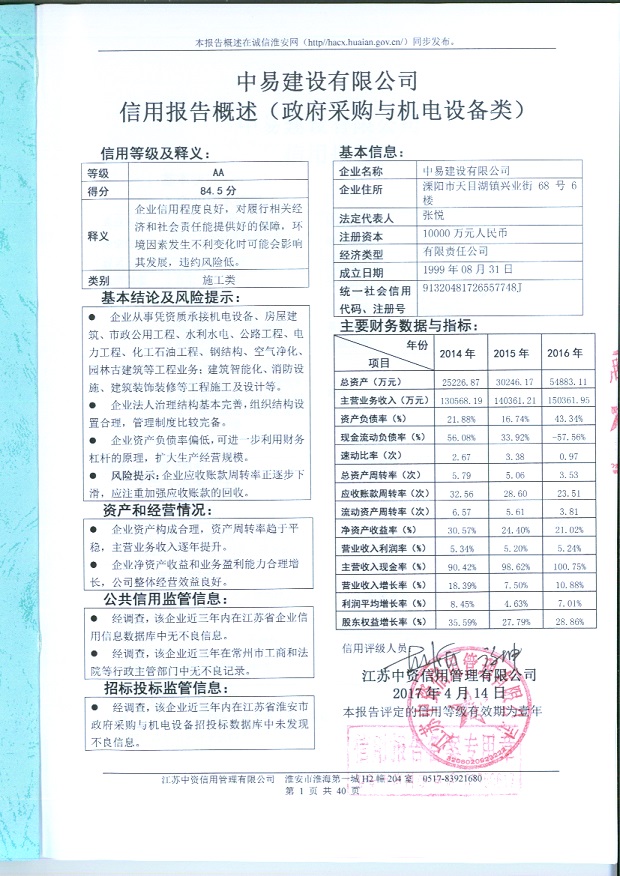 本报告概述在诚信淮安网（http//hacx.huaian.gov.cn/）同步发布。
中易建设有限公司
信用报告概述（政府采购与机电设备类）
信用等级及释义：
等级 AA
得分 84.5分
释义 企业信用程度良好，对履行相关经
济和社会责任能提供好的保障，环
境因素发生不利变化时可能会影响
其发展，违约风险低。
类别 施工类
基本结论及风险提示：
● 企业从事凭资质承接机电设备、房屋建
筑、市政公用工程、水利水电、公路工程、电
力工程、化工石油工程、钢结构、空气净化、
园林古建筑等工程业务；建筑智能化、消防设
施、建筑装饰装修等工程施工及设计等。
● 企业法人治理结构基本完善，组织结构设
置合理，管理制度比较完备。
● 企业资产负债率偏低，可进一步利用财务
杠杆的原理，扩大生产经营规模。
● 风险提示：企业应收账款周转率正逐步下
滑，应注重加强应收账款的回收。
资产和经营情况：
● 企业资产构成合理，资产周转率趋于平
稳，主营业务收入逐年提升。
● 企业净资产收益和业务盈利能力合理增
长，公司整体经营效益良好。
公共信用监管信息：
● 经调查，该企业近三年内在江苏省企业信
用信息数据库中无不良信息。
● 经调查，该企业近三年在常州市工商和法
院等行政主管部门中无不良记录。
招标投标监管信息：
● 经调查，该企业近三年内在江苏省淮安市
政府采购与机电设备招投标数据库中未发现
不良信息。
基本信息：
企业名称 中易建设有限公司
企业住所 溧阳市天目湖镇兴业街 68 号 6
楼
法定代表人 张悦
注册资本 10000 万元人民币
经济类型 有限责任公司
成立日期 1999 年 08 月 31 日
统一社会信用 91320481726557748J
代码、注册号
主要财务数据与指标：
年份
项目 2014 年 2015 年 2016 年
总资产（万元） 25226.87 30246.17 54883.11
主营业务收入（万元） 130568.19 140361.21 150361.95
资产负债率（%） 21.88% 16.74% 43.34%
现金流动负债率（%） 56.08% 33.92% -57.56%
速动比率（%） 2.67 3.38 0.97
总资产周转率（次） 5.79 5.06 3.53
应收账款周转率（次） 32.56 28.60 23.51
流动资产周转率（次） 6.57 5.61 3.81
净资产收益率（%） 30.57% 24.40% 21.02%
营业收入利润率（%） 5.34% 5.20% 5.24%
主营收入现金率（%） 90.42% 98.62% 100.75%
营业收入增长率（%） 18.39% 7.50% 10.88%
利润平均增长率（%） 8.45% 4.63% 7.01%
股东权益增长率（%） 35.59% 27.79% 28.86%
信用评级人员
江苏中资信用管理有限公司
2017 年 4 月 14 日
本报告评定的信用等级有效期为壹年
江苏中资信用管理有限公司 淮安市淮海第一城 H2 幢 204 室 0517-83921680
第 1 页 共 40 页